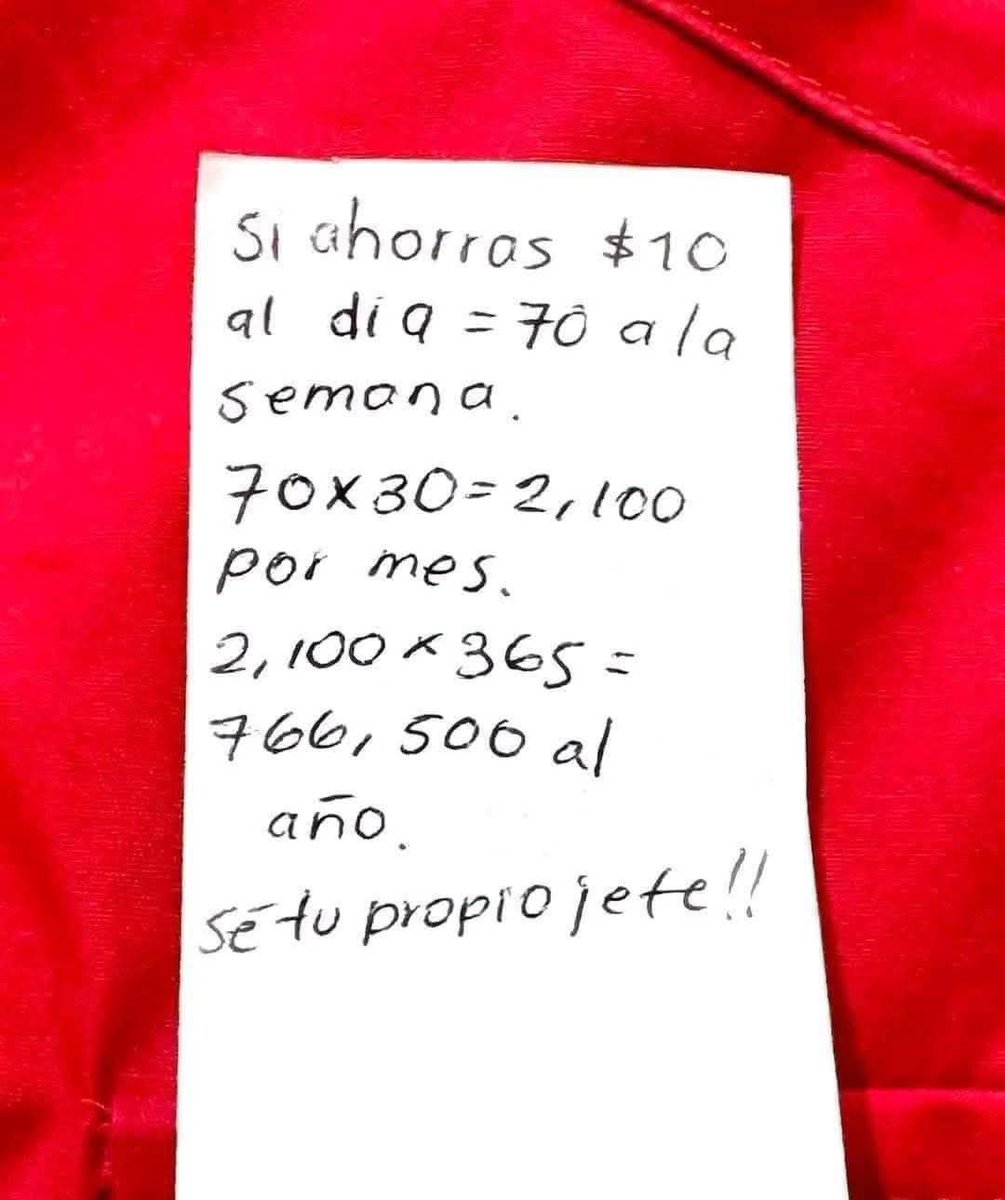 Si ahorras $10
al día = 70 a la
semana.
70x30=2,100
por mes.
2,100 x 365 =
766,500 al
año.
Sé tu propio jefe!!